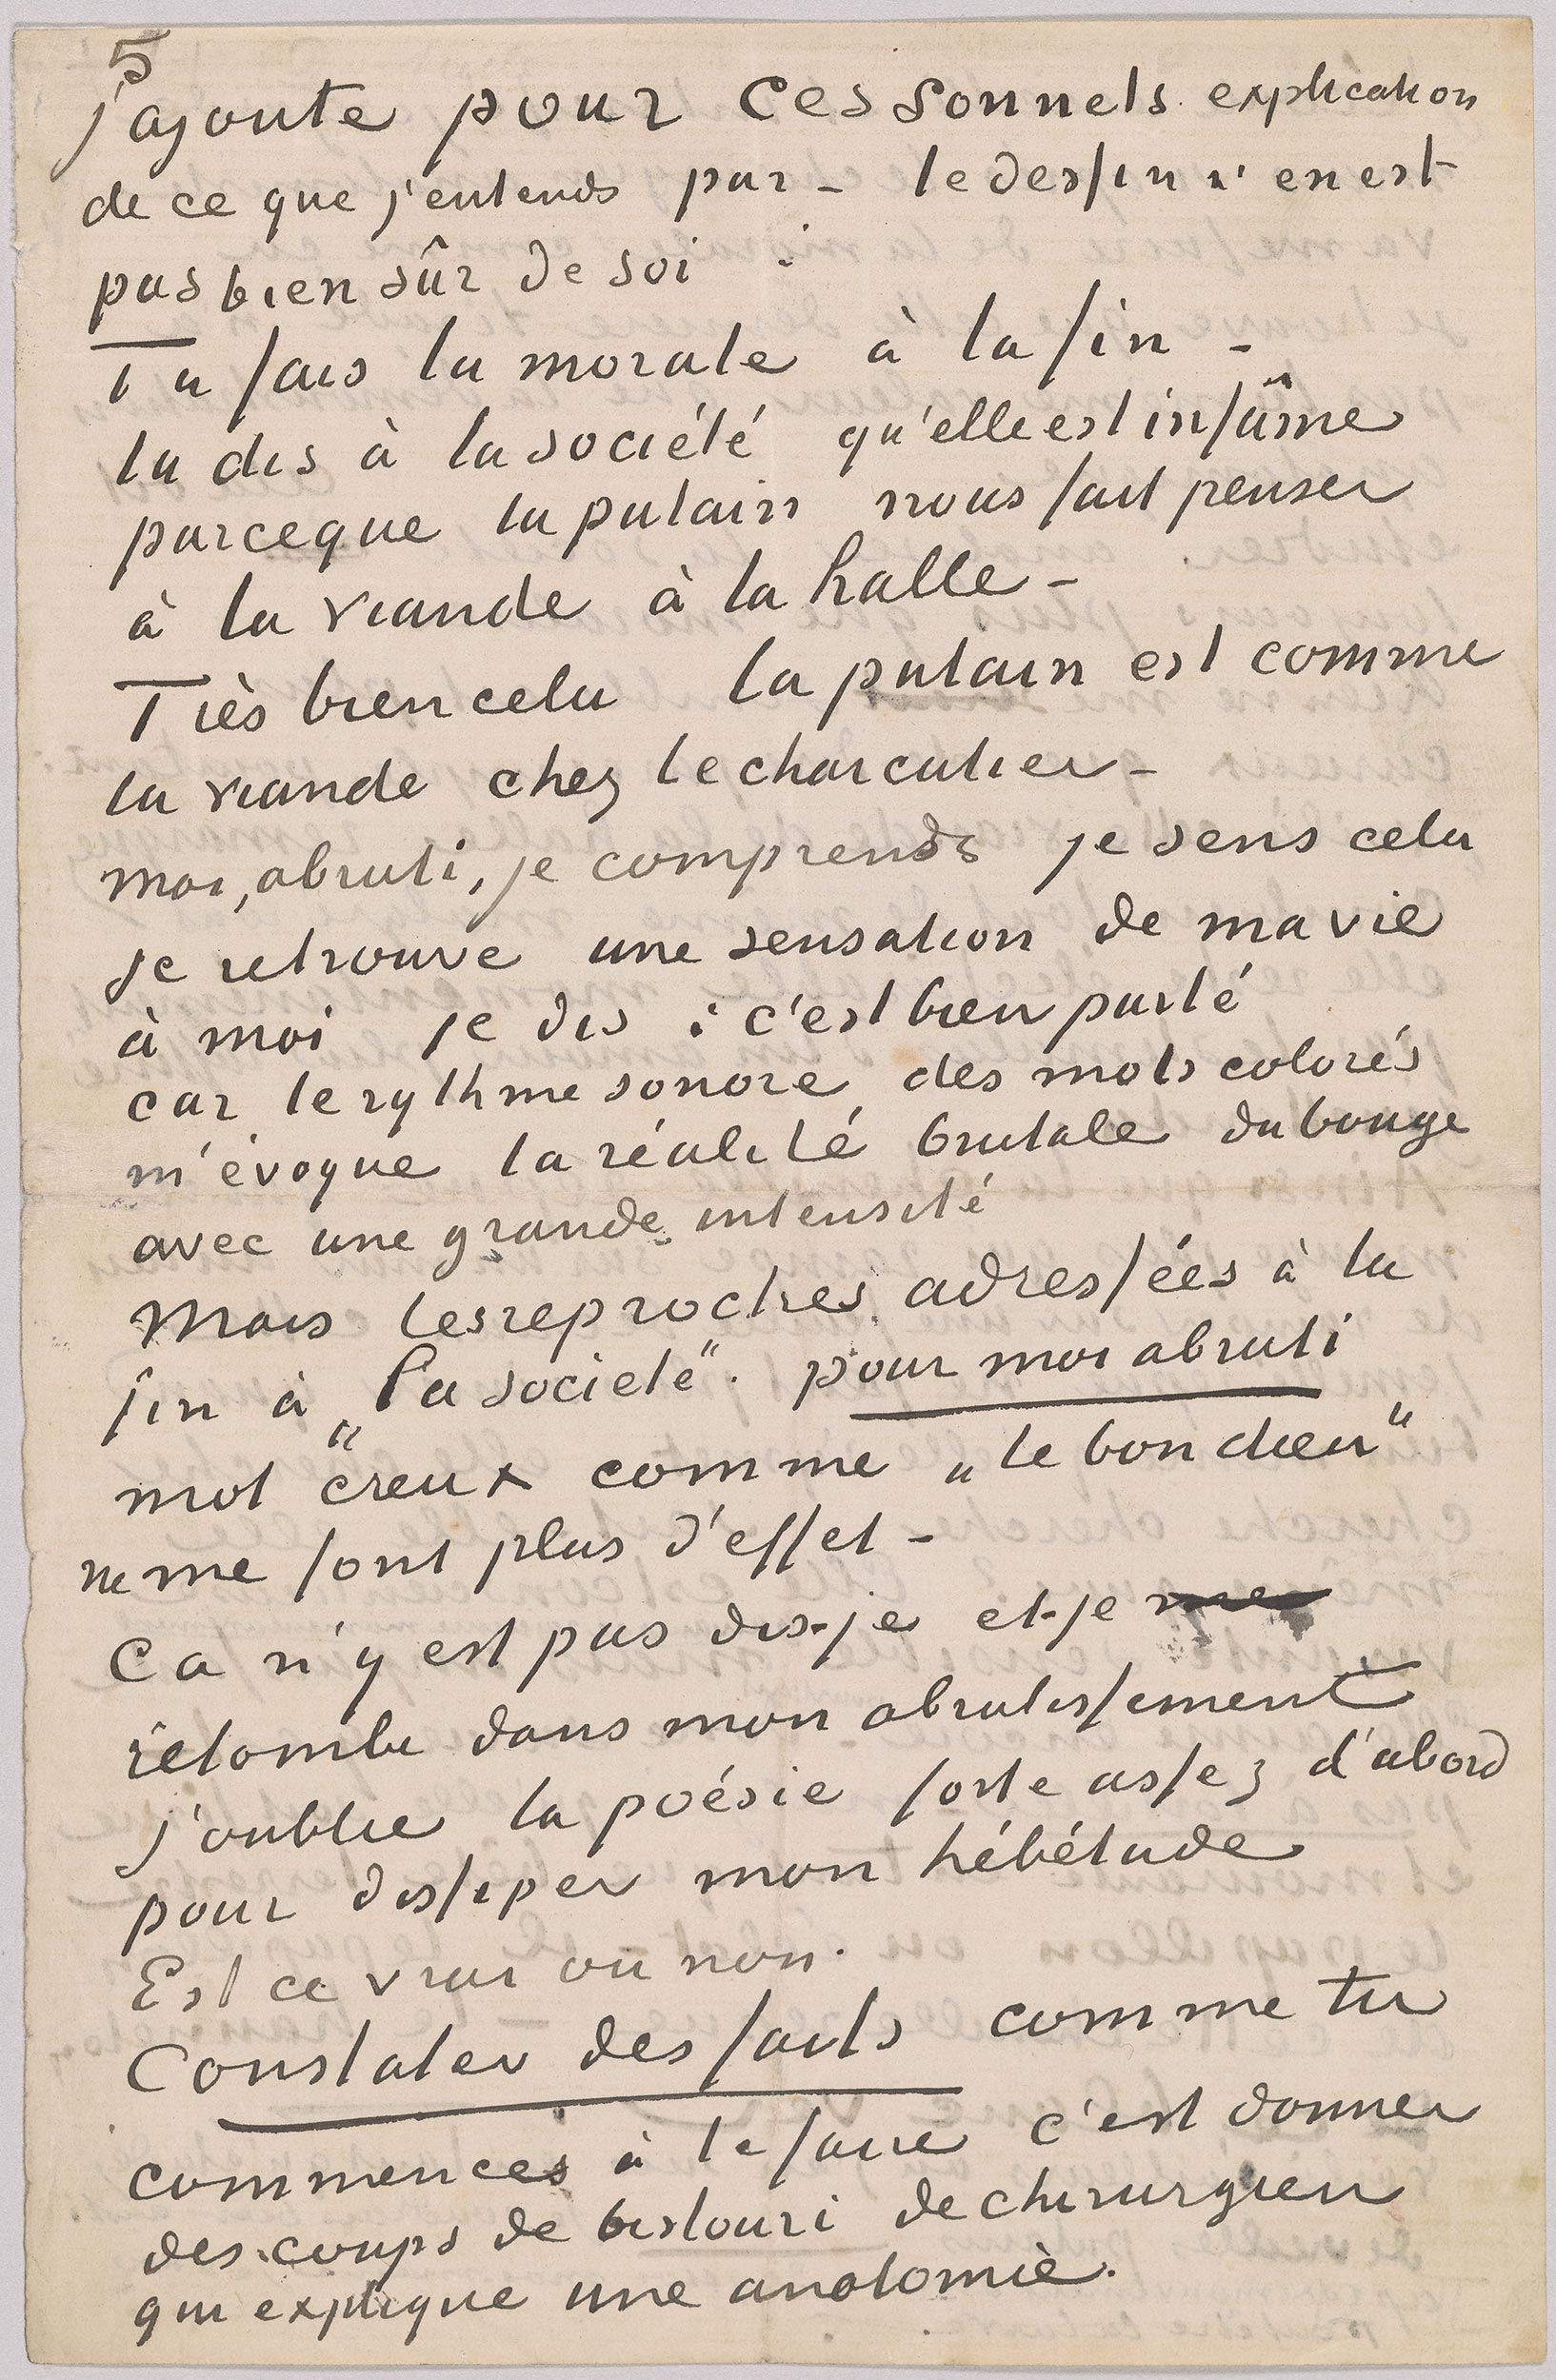 5
j'ajoute pour ces sonnets explication
de ce que j'entends par – le dessin n'en est
pas bien sûr de soi :
Tu fais la morale à la fin –
tu dis à la société qu'elle est infâme
parceque la putain nous fait penser
à la viande à la halle –
Très bien cela la putain est comme
la viande chez le charcutier –
moi, abruti, je comprends je sens cela
je retrouve une sensation de ma vie
à moi je dis : c'est bien parlé
car le rythme sonore des mots colorés
m'évoque la réalité brutale du bouge
avec une grande intensité
Mais les reproches adressées à la
fin à „la société". pour moi abruti
mot "creux comme „le bon dieu"
ne me font plus d'effet –
Ca n'y est pas dis-je et je me
retombe dans mon abrutissement
j'oublie la poésie forte assez d'abord
pour dissiper mon hébétude
Est ce vrai ou non.
Constater des faits comme tu
commences à le faire c'est donner
des coups de bistouri de chirurgien
qui explique une anatomie.